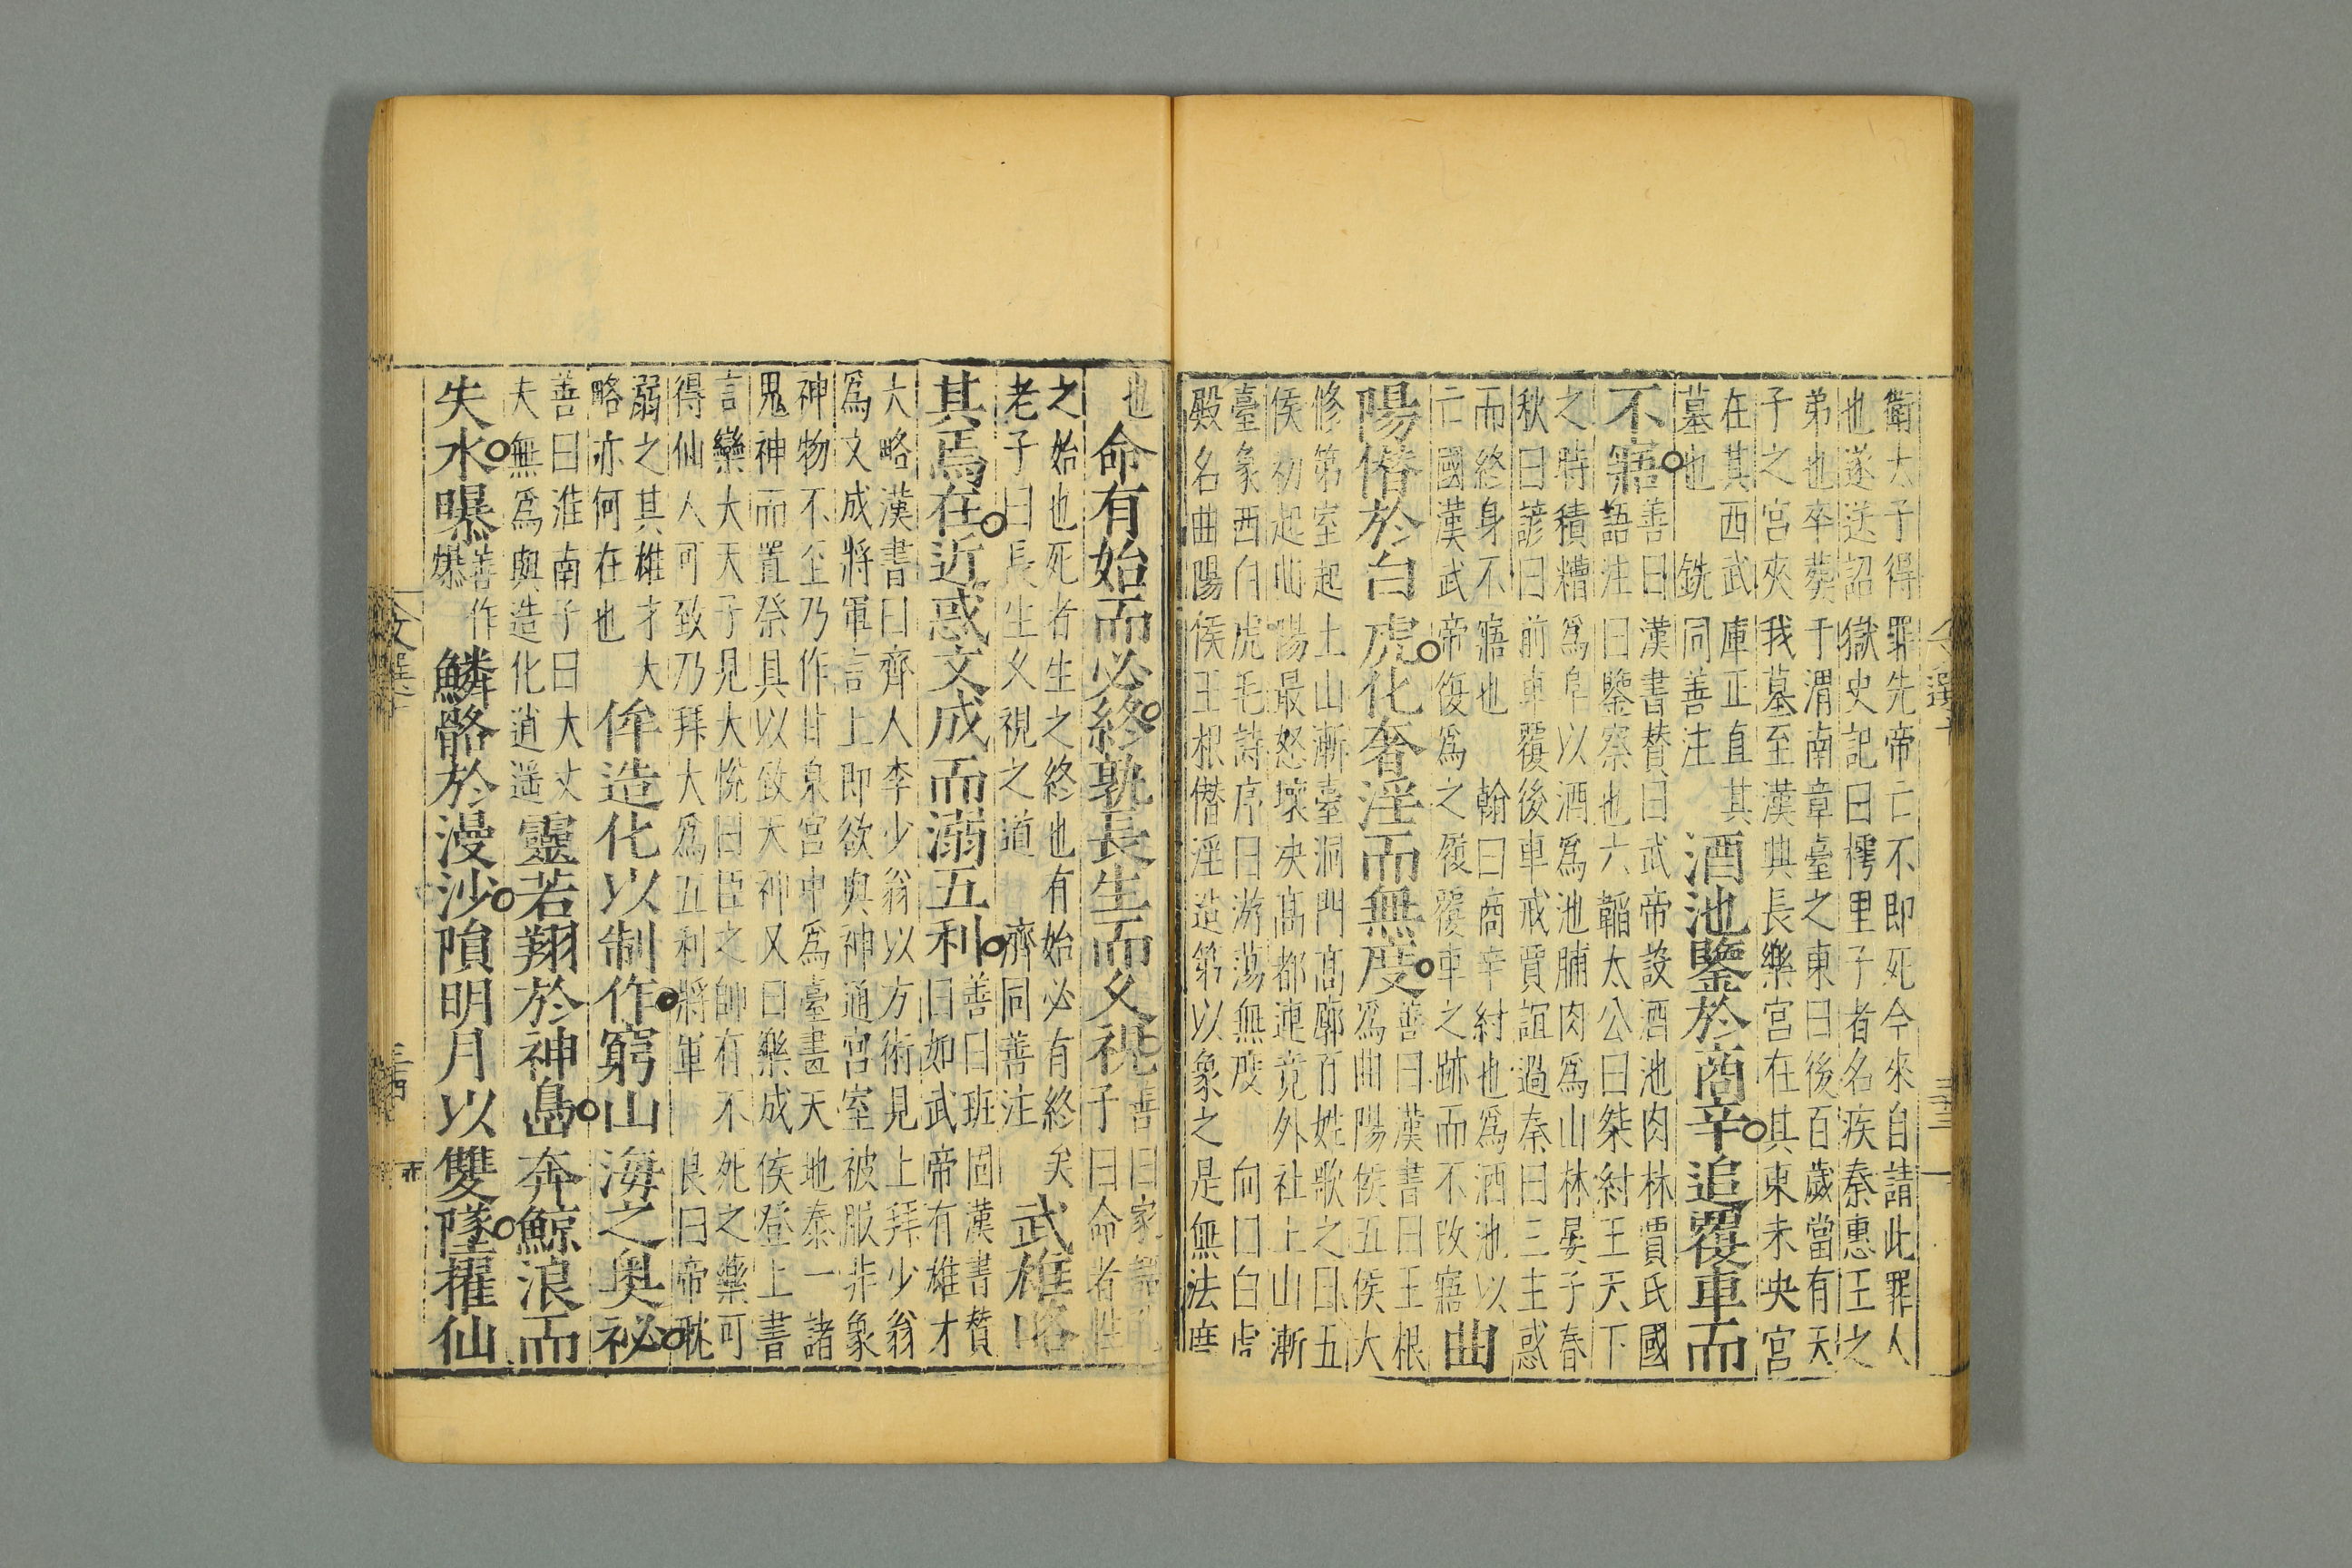 衛太子得罪先帝亡不即死今來自請此罪人
也遂送詔獄史記曰樗里子者名疾秦惠王之
弟也卒葬于渭南章臺之東曰後百歲當有天
子之宮夾我墓至漢興長樂宮在其東未央宮
在其西武庫正直其
墓也 銑同善注
酒池鑒於商辛追覆車而
不寤
善曰漢書贊曰武帝設酒池肉林賈氏國
語注曰鑒察也六韜太公曰桀紂王天下
之時積糟爲阜以酒爲池脯肉爲山林晏子春
秋曰諺曰前車覆後車戒賈誼過秦曰三主惑
而終身不寤也 翰曰商辛紂也爲酒池以
亡國漢武帝復爲之復覆車之跡而不改寤
曲
陽僭於白虎化奢淫而無度
善曰漢書曰王根
爲曲陽侯五侯大
修第室起土山漸臺洞門高廊百姓歌之曰五
侯初起曲陽最怒壞决高都連竟外社土山漸
臺象西白虎毛詩序曰游蕩無度 向曰白虎
殿名曲陽侯王根僭淫造第以象之是無法度
文選
也
命有始而必終孰長生而久視
善曰家語孔
子曰命者性
之始也死者生之終也有始必有終矣
老子曰長生久視之道 濟同善注
武雄略
其焉在近惑文成而溺五利
善曰班固漢書贊
曰如武帝有雄才
大略漢書曰齊人李少翁以方術見上拜少翁
爲文成將軍言上即欲與神通宮室被服非象
神物不至乃作甘泉宮中爲臺畫天地泰一諸
鬼神而置祭具以致天神又曰樂成侯登上書
言欒大天子見大悅曰臣之師有不死之藥可
得仙人可致乃拜大爲五利將軍 良曰帝耽
溺之其雄才大
略亦何在也
侔造化以制作窮山海之奥祕
善曰淮南子曰大丈
夫無爲與造化逍遥
靈若翔於神島奔鯨浪而
失水曝
善作
爆
鱗骼於漫沙隕明月以雙墜擢仙
文選